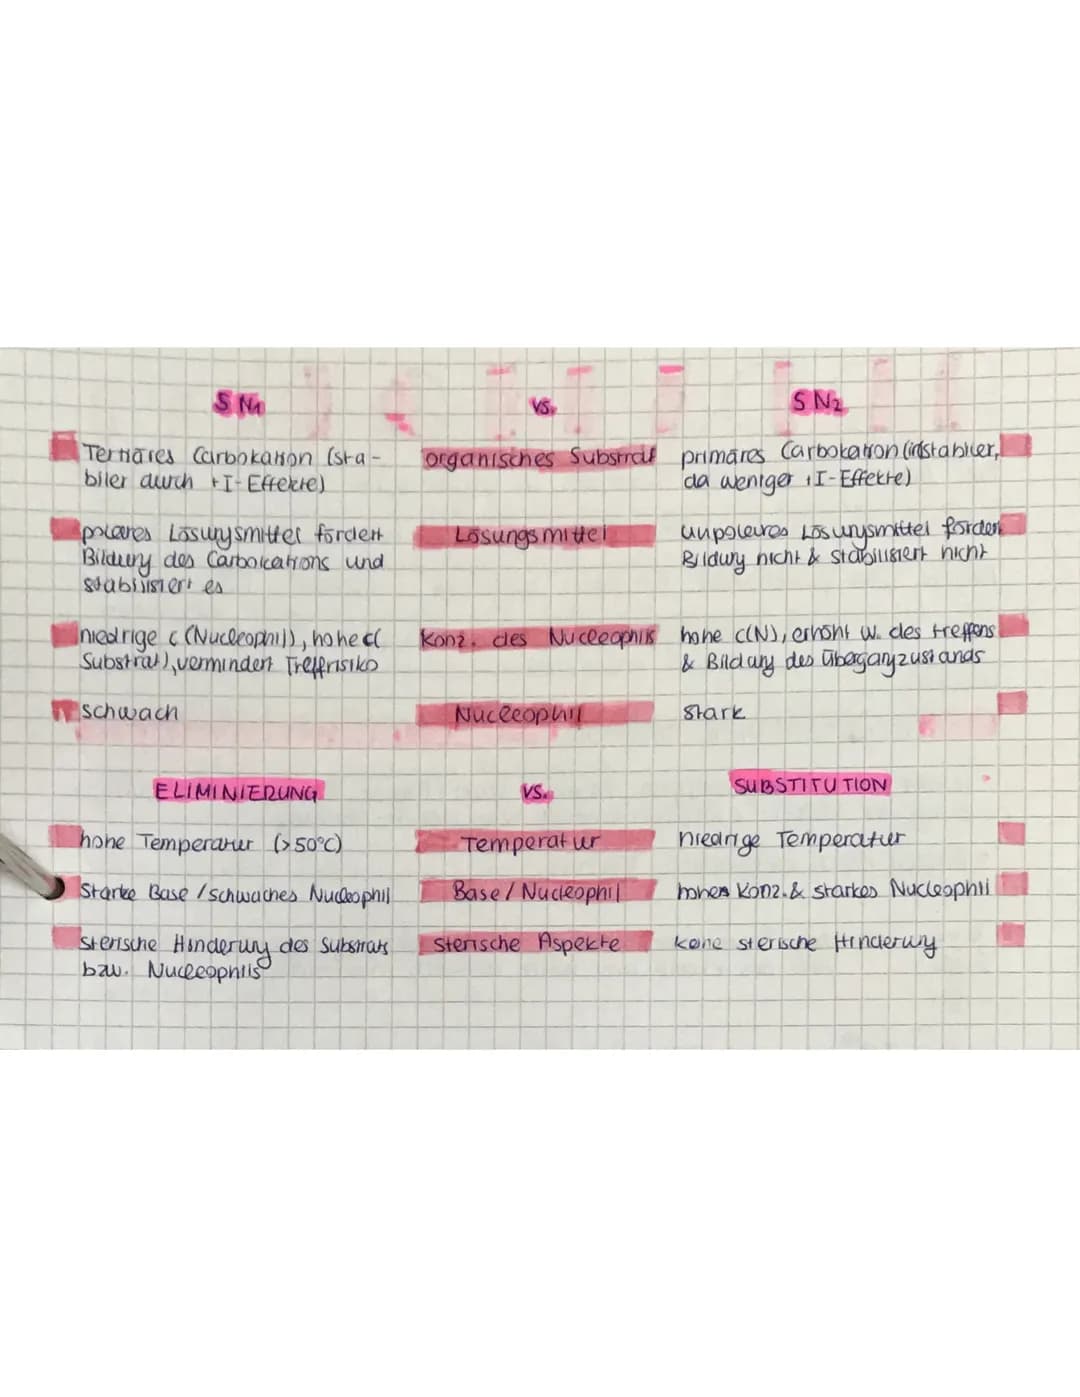 SN1 vs. SN2
Tertiäres Carbokation (sta- organisches Substrat primäres Carbokation (instabiler,
biler durch +I-Effekte) da weniger +I-Effekte)
polares Lösungsmittel fördert Lösungsmittel unpolares Lösungsmittel fördert
Bildung des Carbokations und Bildung nicht & stabilisiert nicht
stabilisiert es
niedrige c (Nucleophil), hohe c( Konz. des Nucleophils hohe c(N), erhöht W. des Treffens
Substrat), vermindert Treffrisiko & Bildung des Übergangzustands
schwach Nucleophil stark
ELIMINIERUNG vs. SUBSTITUTION
hohe Temperatur (>50°C) Temperatur niedrige Temperatur
Starke Base / schwaches Nucleophil Base / Nucleophil hohes Konz. & starkes Nucleophil
sterische Hinderung des Substrats sterische Aspekte keine sterische Hinderung
bzw. Nucleophils